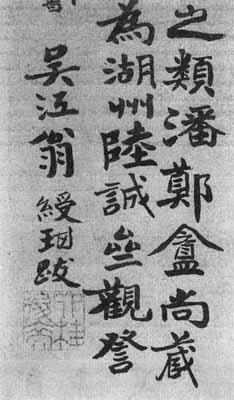 之類潘鄭盦尚藏
為湖州陸誠亝觀詧
吳江翁綬琪跋